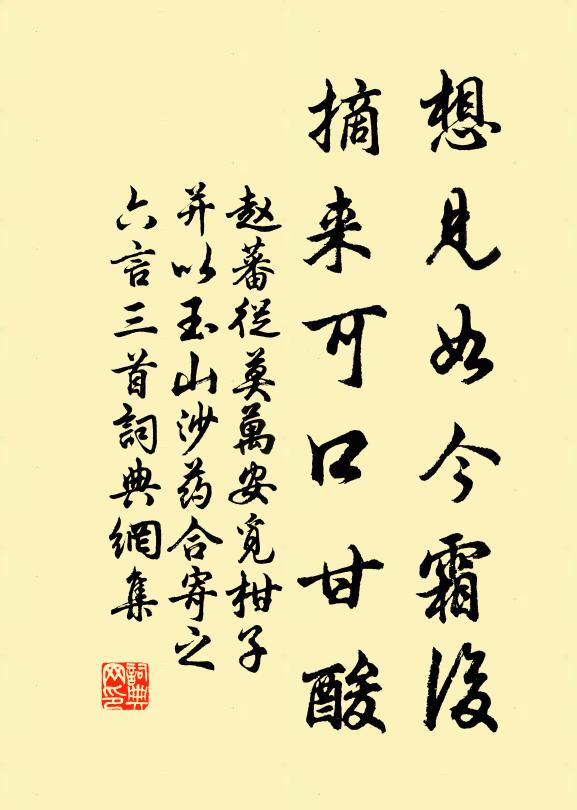 想见如今霜後
摘来可口甘酸
赵蕃從莫萬安覓柑子
并以玉山沙药合寄之
六言三首詞典網集
詞典
网印